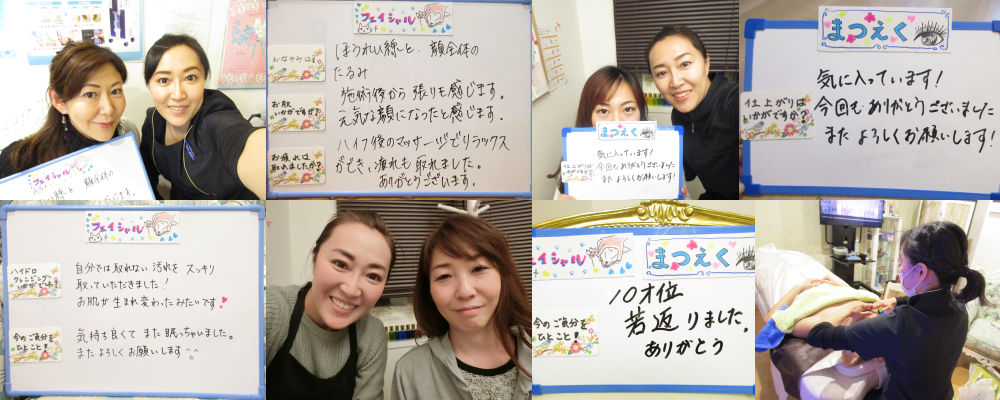 フェイシャル
フェイシャル
おなやみは?
ほうれい線と、顔全体の
たるみ
お肌
いかがですか?
施術後から張りも感じます。
元気な顔になったと感じます。
お疲れは
取れましたか?
ハイフ後のマッサージでリラックス
ができ、疲れも取れました。
ありがとうございます。
まつえく
気に入っています!
今回もありがとうございました
またよろしくお願いします!
まつえく
仕上がりは
いかがですか?
気に入っています!
今回もありがとうございました
またよろしくお願いします!
フェイシャル
ハイドロ
クレンジング
いかがでした?
自分では取れない汚れをスッキリ
取っていただきました!
お肌が生まれ変わったみたいです
今のご気分を
ひとこと!
気持ち良くてまた眠っちゃいました。
またよろしくお願いします
ェイシャル
まつえく
今のご気分を
ひとこと!
10才位
若返りました。
ありがとう